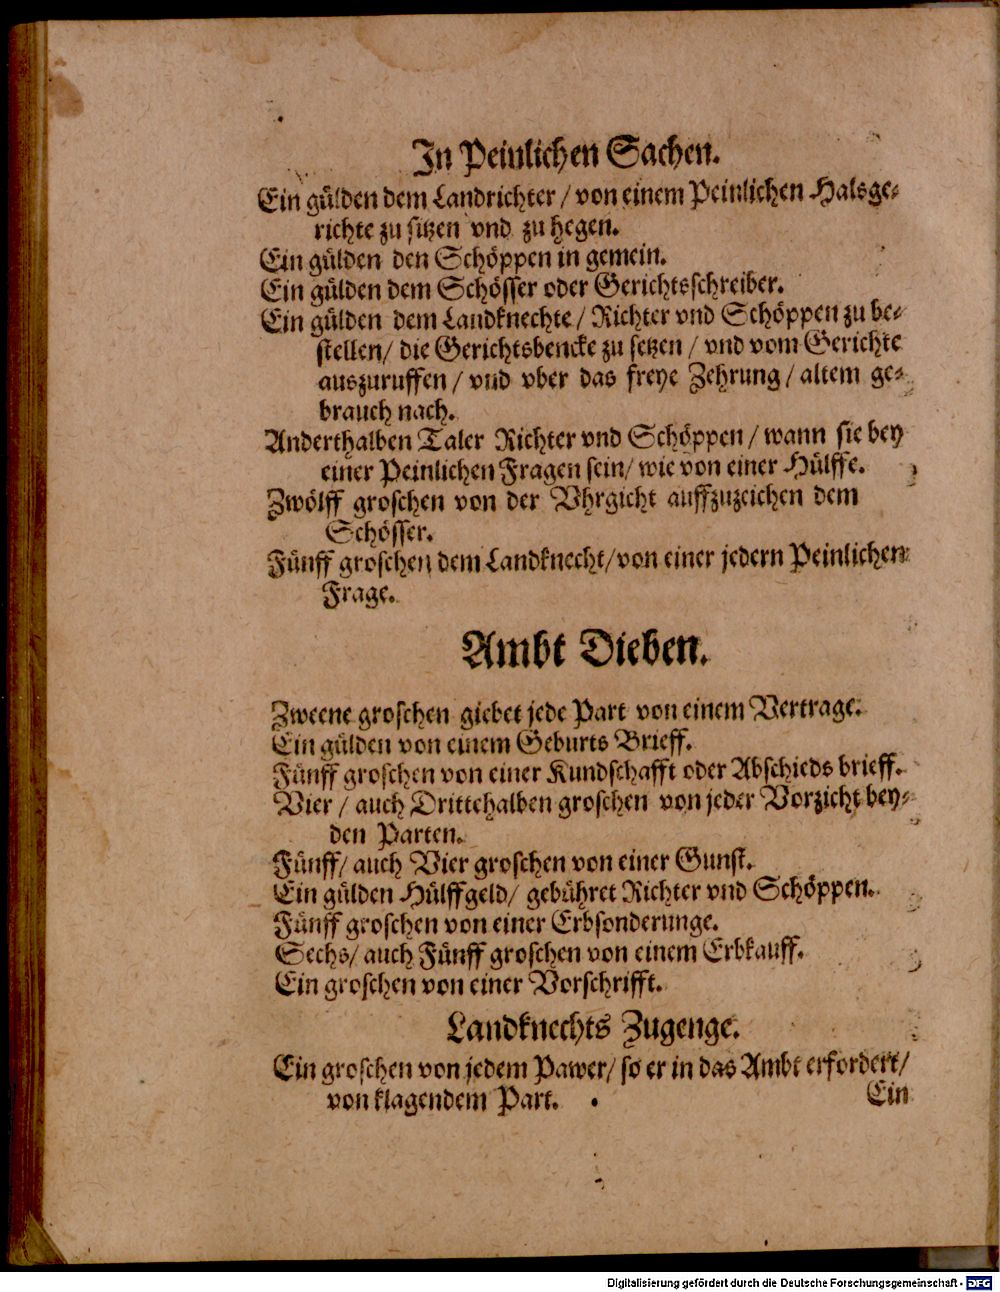 In Peinlichen Sachen.
Ein gülden dem Landrichter / von einem Peinlichen Halsge-
richte zu sitzen vnd zu hegen.
Ein gülden den Schöppen in gemein.
Ein gülden dem Schösser oder Gerichtsschreiber.
Ein gülden dem Landknechte / Richter vnd Schöppen zu be-
stellen / die Gerichtsbencke zu setzen / vnd vom Gerichte
auszuruffen / vnd vber das freye Zehrung / altem ge-
brauch nach.
Anderthalben Taler Richter vnd Schöppen / wann sie bey
einer Peinlichen Fragen sein / wie von einer Hülffe.
Zwölff groschen von der Vhrgicht auffzuzeichen dem
Schösser.
Fünff groschen dem Landknecht / von einer jedern Peinlichen
Frage.
Ambt Dieben.
Zweene groschen giebet jede Part von einem Vertrage.
Ein gülden von einem Geburts Brieff.
Fünff groschen von einer Kundschafft oder Abschieds brieff.
Vier / auch Drittehalben groschen von jeder Vorzicht bey-
den Parten.
Fünff / auch Vier groschen von einer Gunst.
Ein gülden Hülffgeld / gebühret Richter vnd Schöppen.
Fünff groschen von einer Erbsonderunge.
Sechs / auch Fünff groschen von einem Erbkauff.
Ein groschen von einer Vorschrifft.
Landknechts Zugenge.
Ein groschen von jedem Pawer / so er in das Ambt erfordert /
von klagendem Part.
Ein
Digitalisierung gefördert durch die Deutsche Forschungsgemeinschaft - DFG